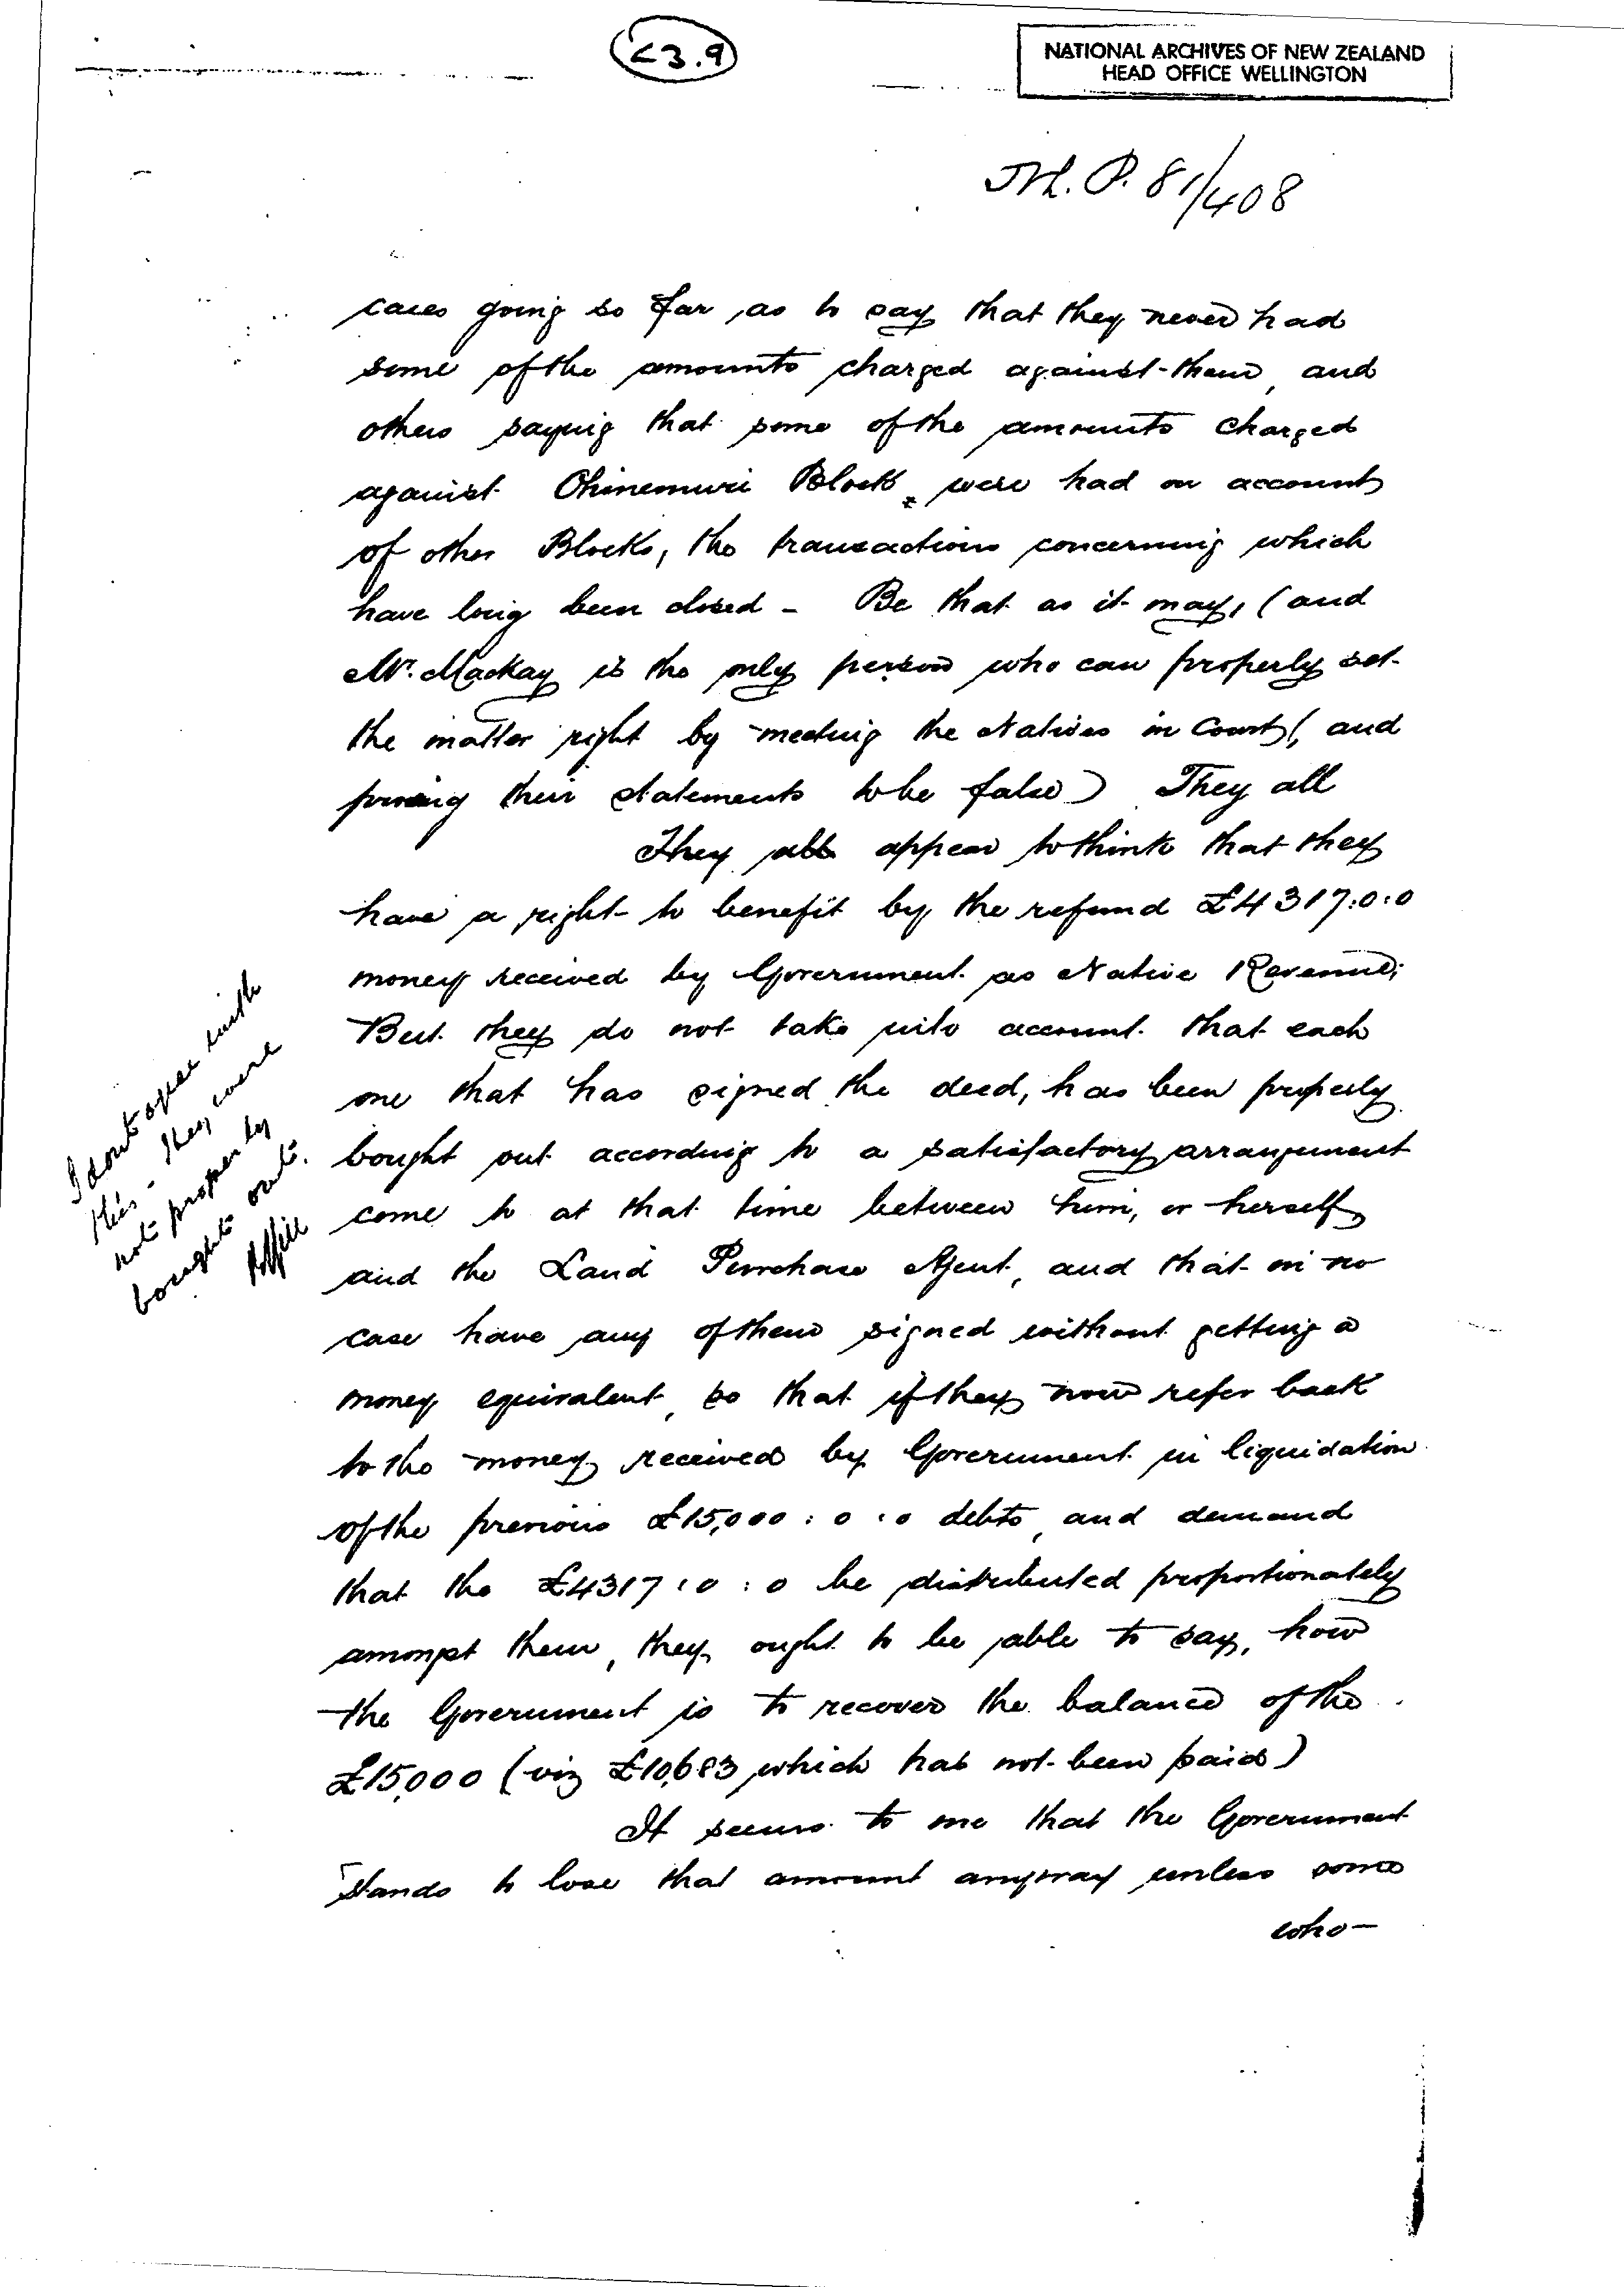 <3.9
NATIONAL ARCHIVES OF NEW ZEALAND
HEAD OFFICE WELLINGTON
81/408
cases going so far as to say that they never had
some of the amounts charged against them, and
others saying that some of the amounts charged
against Ohinemuri Block, were had on account
of other Blocks, the transactions concerning which
have long been closed - Be that as it may, (and
Mr. Mackay is the only person who can properly set
the matter right by meeting the Natives in Court, and
proving their statements to be false) They all
They all appear to think that they
have a right to benefit by the refund £4317:0:0
money received by Government as Native Revenue;
But they do not take into account that each
one that has signed the deed, has been properly
bought out according to a satisfactory arrangement
come to at that time between him, or herself
and the Land Purchase Agent, and that in no
case have any of them signed without getting a
money equivalent, so that if they now refer back
to the money received by Government in liquidation
of the previous £15,000:0:0 debts, and demand
that the £4317:0:0 be distributed proportionately
amongst them, they ought to be able to say, how
the Government is to recover the balance of the
£15,000 (viz £10,683 which has not been paid)
It seems to me that the Government
stands to lose that amount anyway unless some
who-
I dont agree with
this - they were
not properly
bought out.